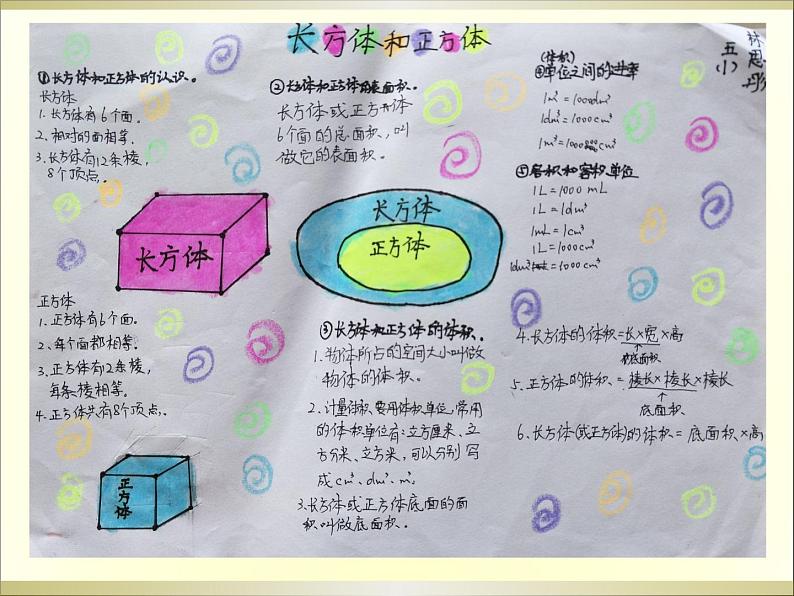 长方体和正方体
五
(1)
林
思
①长方体和正方体的认识。
长方体
1.长方体有6个面。
2.相对的面相等。
3.长方体有12条棱,
8个顶点。
长方体
正方体
1.正方体有6个面。
2.每个面都相等。
3.正方体有12条棱,
每条棱相等。
4.正方体共有8个顶点。
正方体
②长方体和正方体的表面积。
长方体或正方体
6个面的总面积,叫
做它的表面积。
长方体
正方体
③长方体和正方体的体积。
1.物体所占的空间大小叫做
物体的体积。
2.计量体积,要用体积单位,常用
的体积单位有:立方厘米、立
方分米、立方米,可以分别写
成cm³、dm³、m³。
3.长方体或正方体底面的面
积叫做底面积。
(体积)
④单位之间的进率
1m³=1000dm³
1dm³=1000cm³
1m³=1000
⑤容积和容积单位
1L=1000mL
1L=1dm³
1mL=1cm³
1L=1000cm³
1dm³=1000cm³
4.长方体的体积=长×宽×高
底面积
5.正方体的体积=棱长×棱长×棱长
底面积
6.长方体(或正方体)的体积=底面积×高